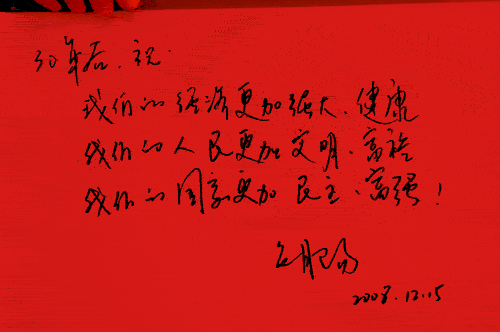 30年后，祝：
我们的经济更加强大、健康
我们的人民更加文明、富裕
我们的国家更加民主、富强！
2008.12.15